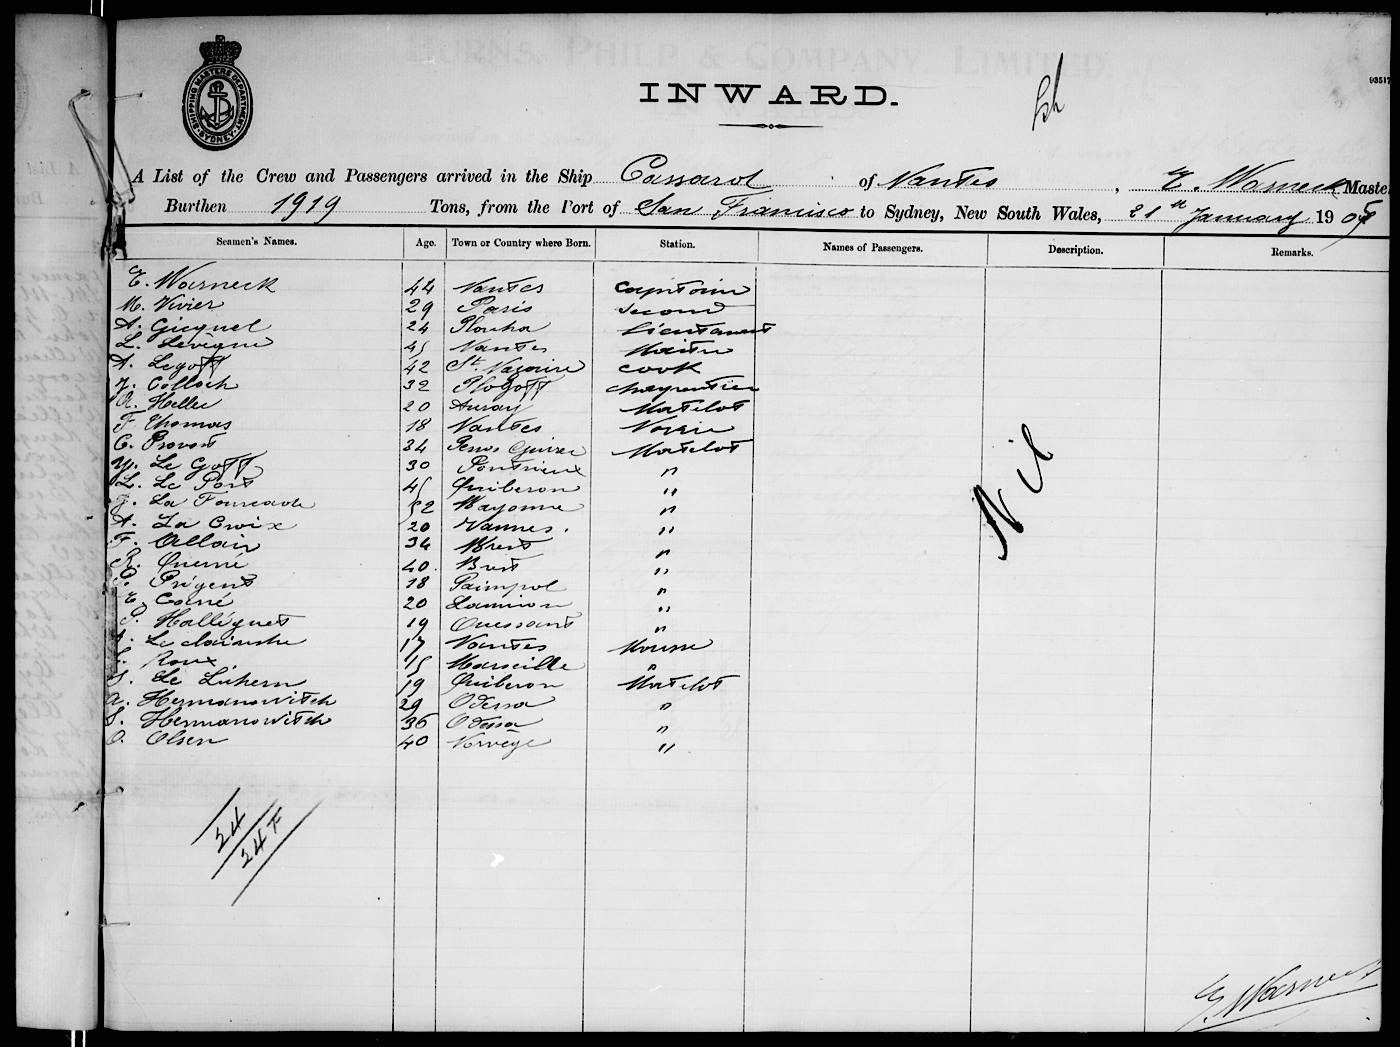 SHIPPING MASTERS DEPARTMENT SYDNEY
BURNS, PHILP & COMPANY LIMITED
INWARD.
93517
A List of the Crew and Passengers arrived in the Ship Cassard of Nantes, E. Warneck Master
Burthen 1919 Tons, from the Port of San Francisco to Sydney, New South Wales, 21st January 190
Seamen's Names. Age. Town or Country where Born. Station. Names of Passengers. Description. Remarks.
E. Warneck 44 Nantes Capitaine
M. Vivier 29 Paris Second
A. Gicquel 24 Plouha Lieutenant
L. Levêque 45 Nantes Maitre
A. Legoff 42 St. Nazaire Cook
J. Colloch 32 Plogoff Charpentier
A. Hellec 20 Auray Matelot
F. Thomas 18 Nantes Novice
C. Provost 34 Perros Guirec Matelot
Y. Le Goff 30 Pontrieux "
L. Le Port 45 Quiberon "
J. La Fourcade 52 Bayonne "
A. La Croix 20 Vannes. "
F. Allain 34 Brest "
R. Querné 40 Brest "
P. Prigent 18 Paimpol "
E. Carné 20 Lannion "
P. Halléguet 19 Ouessant "
A. Le 17 Nantes Mousse
Roux 15 Marseille "
Le Lichern 19 Quiberon Matelot
A. Hermanowitch 29 Odessa "
S. Hermanowitch 36 Odessa "
O. Olsen 40 Norvège "
Nil
24
24 F
E. Warneck